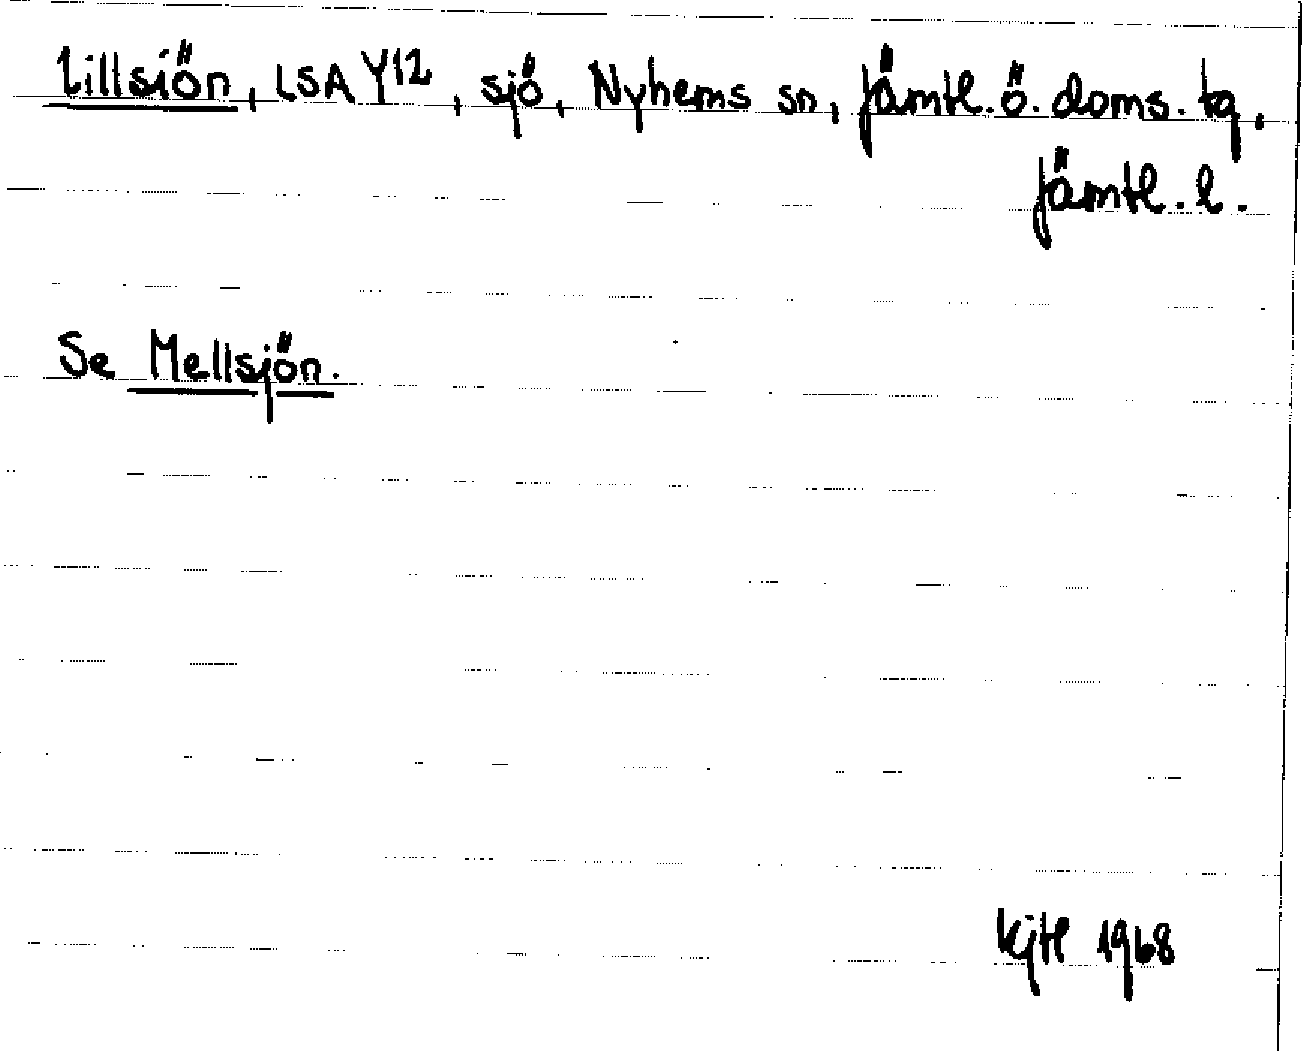 Lillsjön, LSA Y12, sjö, Nyhems sn, Jämtl. ö. doms. tg.
Jämtl. l.
Se Mellsjön.
Kjtl 1968